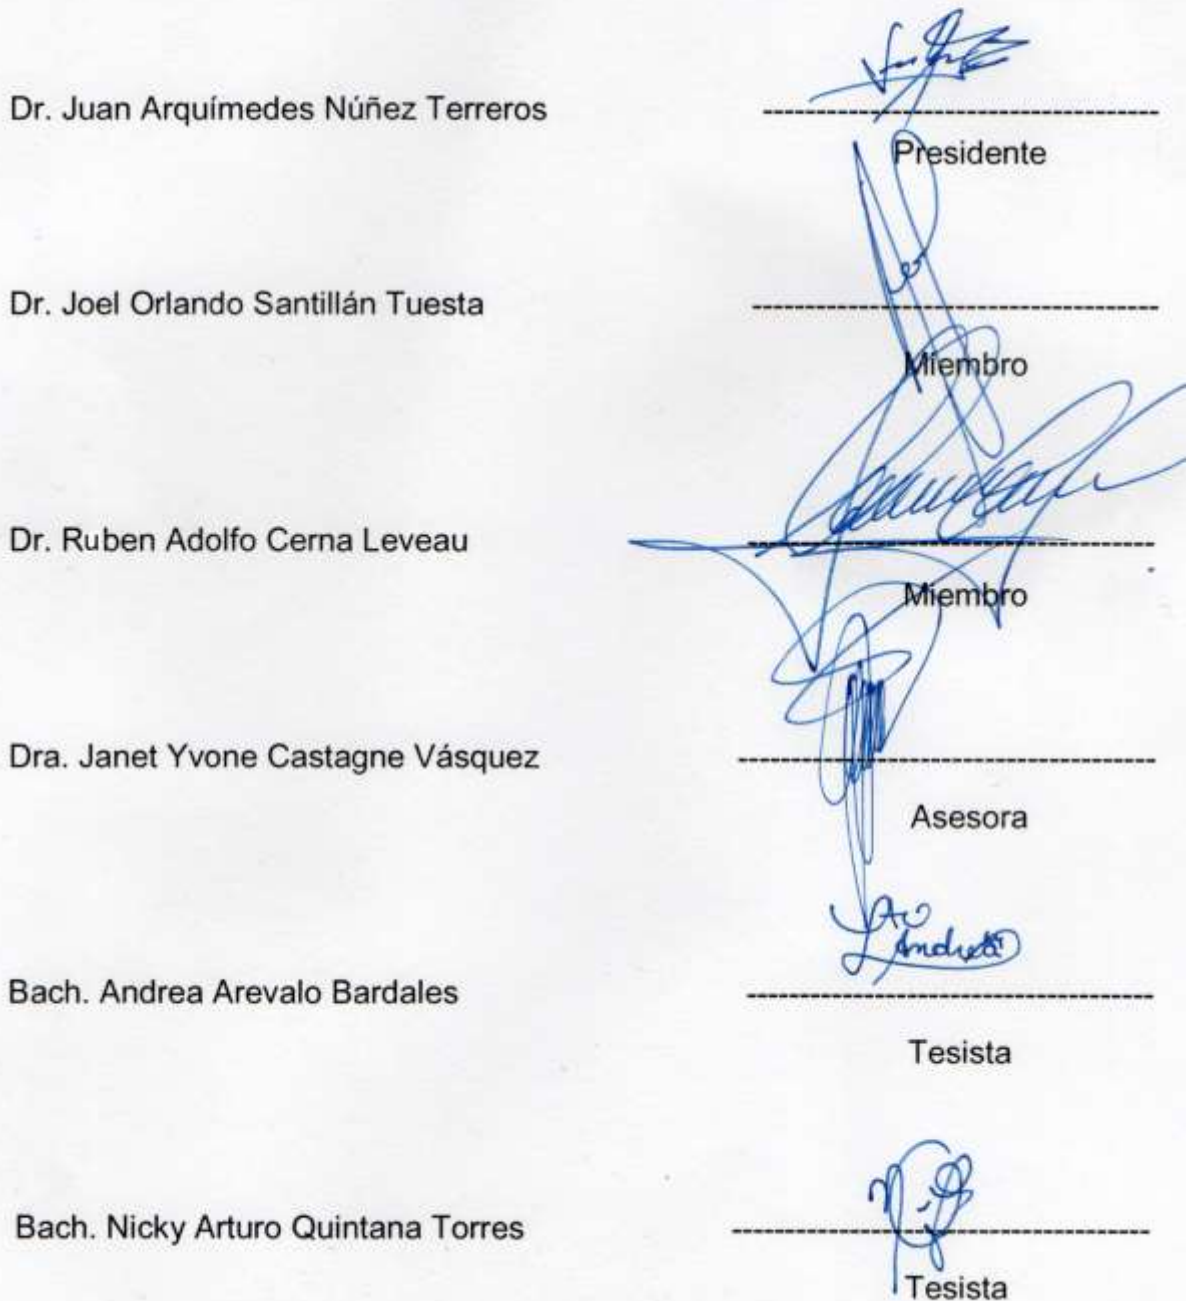 Dr. Juan Arquímedes Núñez Terreros
Presidente
Dr. Joel Orlando Santillán Tuesta
Miembro
Dr. Ruben Adolfo Cerna Leveau
Miembro
Dra. Janet Yvone Castagne Vásquez
Asesora
Andrea
Bach. Andrea Arevalo Bardales
Tesista
Bach. Nicky Arturo Quintana Torres
Tesista